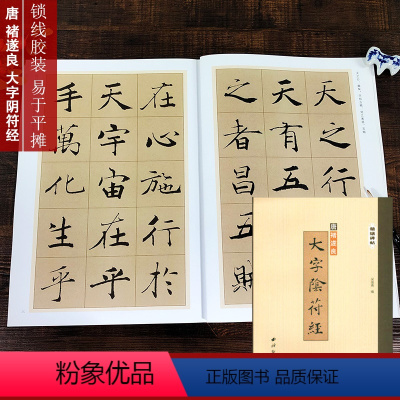 锁线胶装 易于平摊
唐 褚遂良 大字阴符经
天之行
天有五
之者昌五賊
在心施行於
天宇宙在乎
手萬化生乎
唐褚遂良
大字陰符經
粉象优品